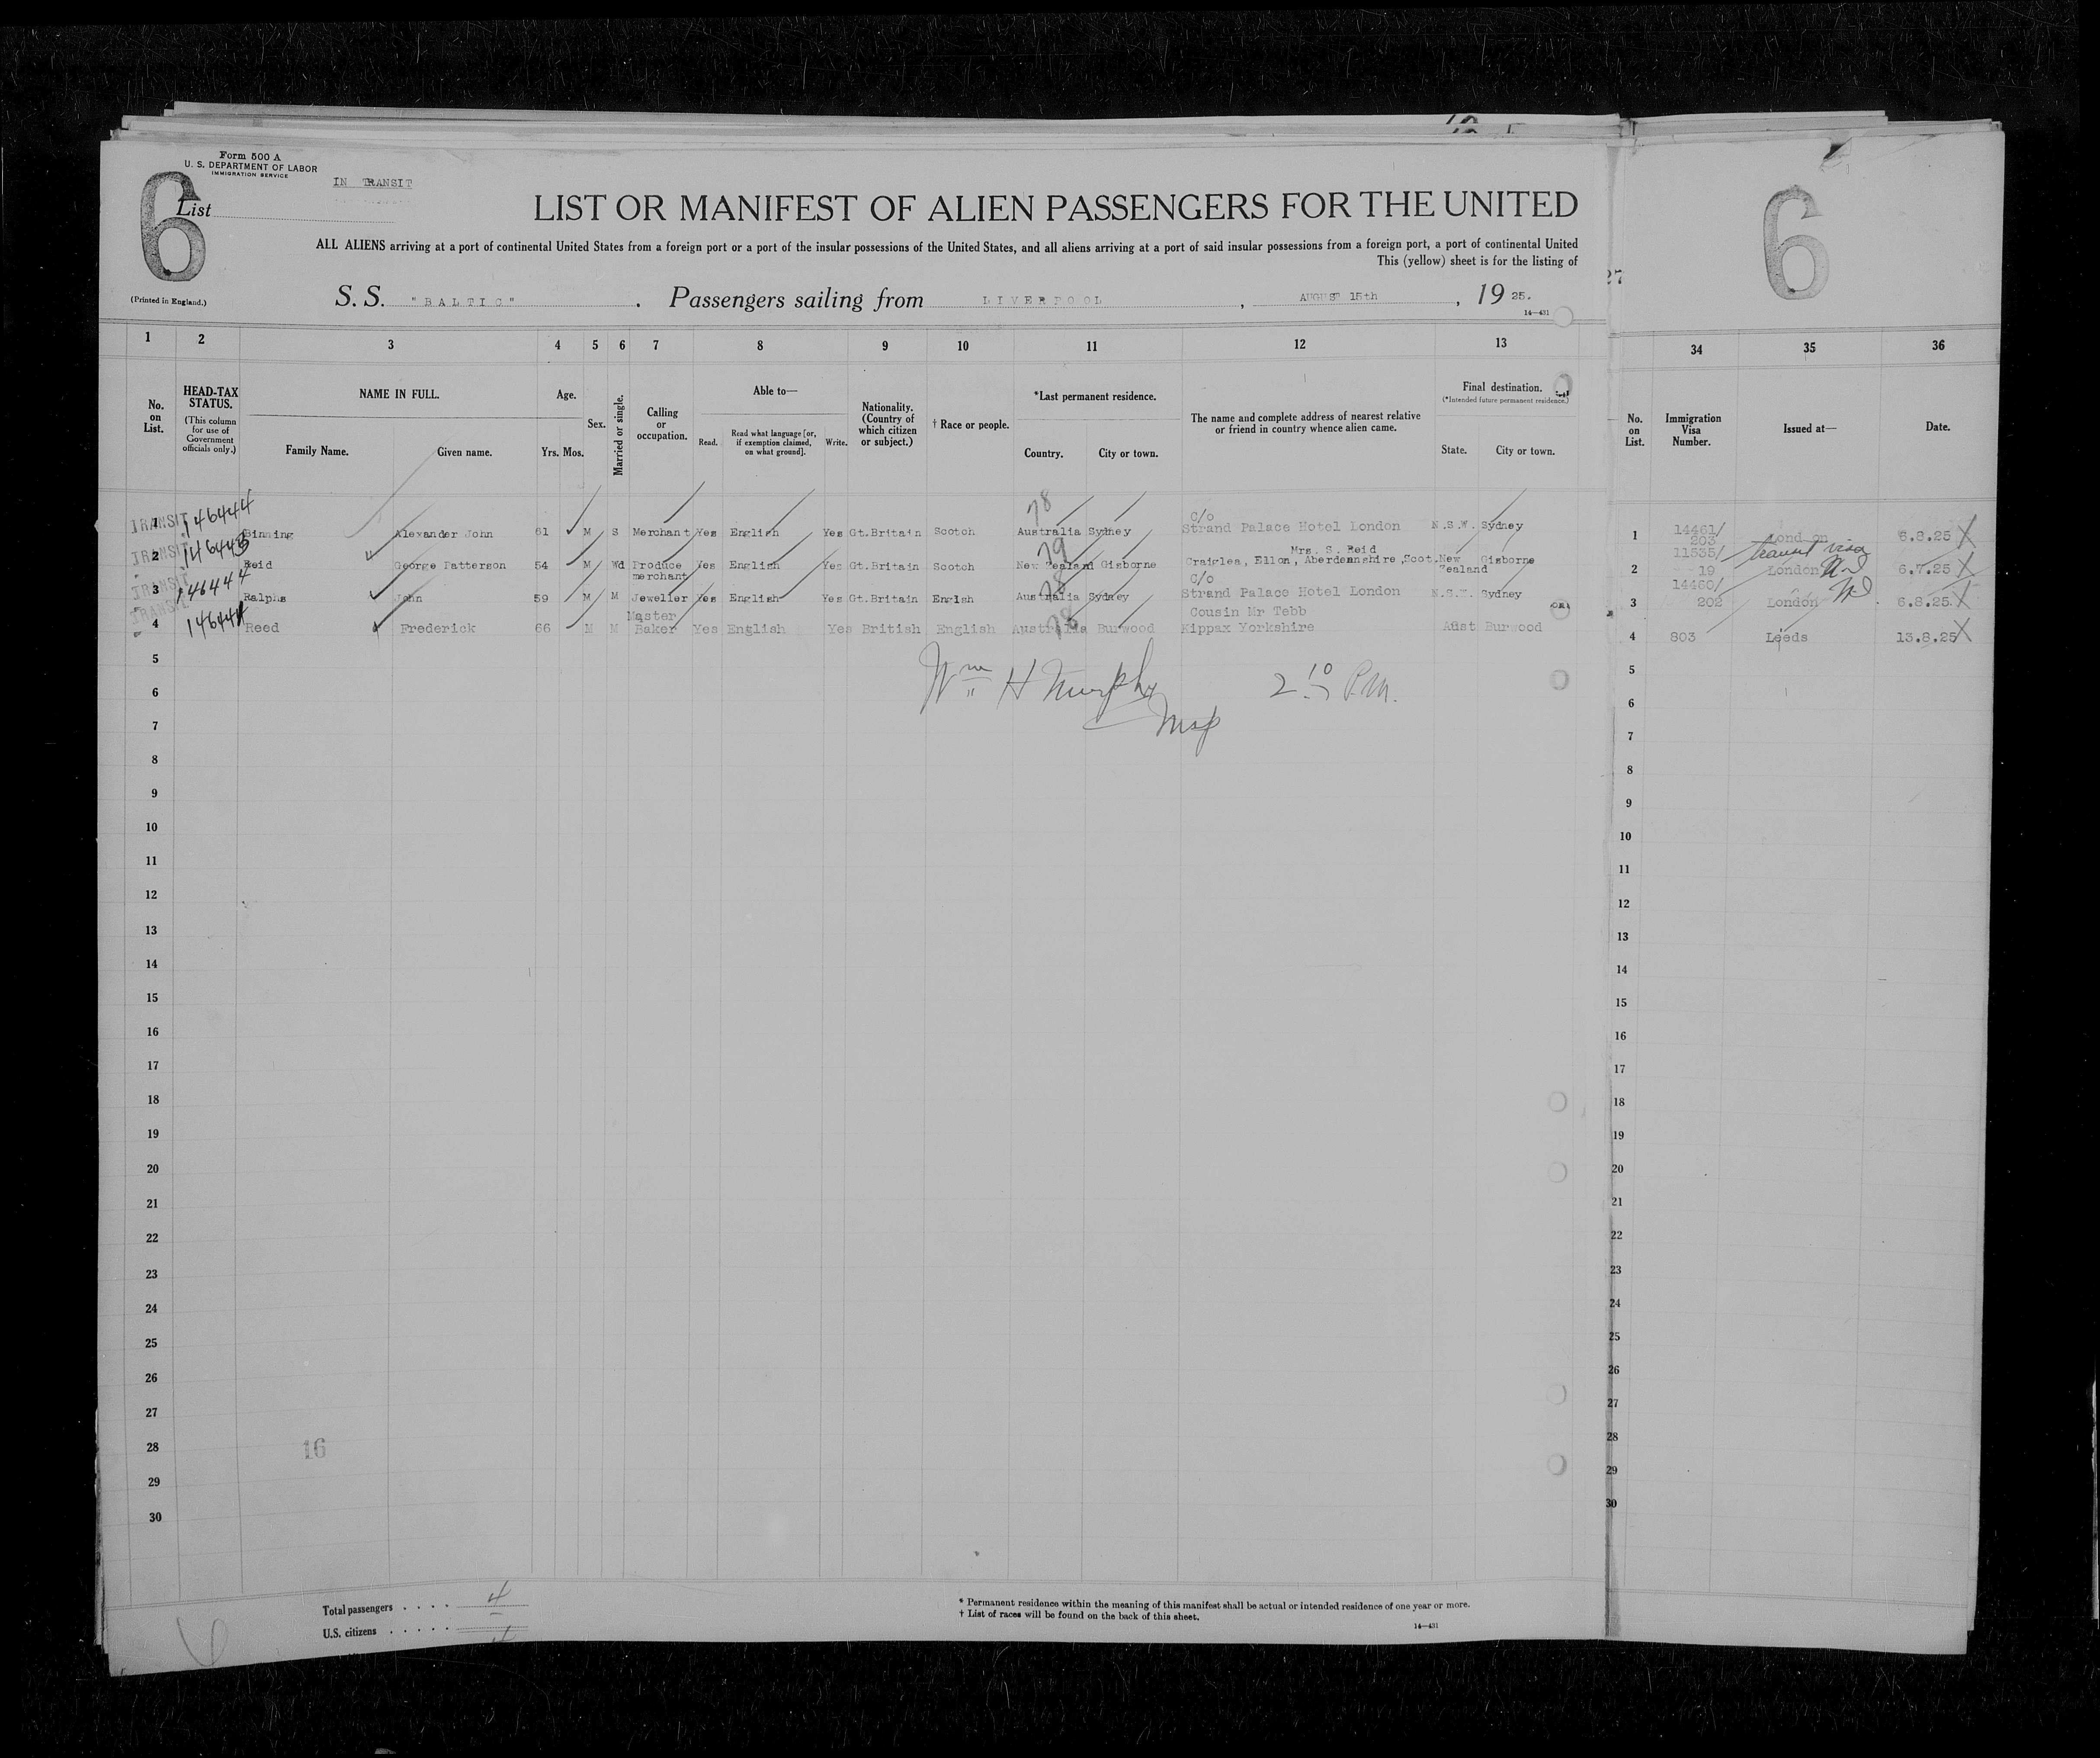 Form 500 A
U. S. DEPARTMENT OF LABOR
IMMIGRATION SERVICE
IN TRANSIT
6
List
(Printed in England.)
LIST OR MANIFEST OF ALIEN PASSENGERS FOR THE UNITED
ALL ALIENS arriving at a port of continental United States from a foreign port or a port of the insular possessions of the United States, and all aliens arriving at a port of said insular possessions from a foreign port, a port of continental United
This (yellow) sheet is for the listing of
S. S. "BALTIC". Passengers sailing from LIVERPOOL, AUGUST 15th, 19 25.
14—431
27
6
1 2 3 4 5 6 7 8 9 10 11 12 13 34 35 36
No. on List.
HEAD-TAX STATUS.
(This column for use of Government officials only.)
NAME IN FULL.
Family Name. Given name.
Age.
Yrs. Mos.
Sex.
Married or single.
Calling or occupation.
Able to—
Read. Read what language [or, if exemption claimed, on what ground]. Write.
Nationality. (Country of which citizen or subject.)
† Race or people.
*Last permanent residence.
Country. City or town.
The name and complete address of nearest relative or friend in country whence alien came.
Final destination.
(*Intended future permanent residence.)
State. City or town.
No. on List.
Immigration Visa Number.
Issued at—
Date.
TRANSIT 1 146444 Binning Alexander John 61 M S Merchant Yes English Yes Gt.Britain Scotch 78 Australia Sydney C/o Strand Palace Hotel London N.S.W. Sydney 1 14461/203 London 6.8.25 X
TRANSIT 2 146445 Reid George Patterson 54 M Wd Produce merchant Yes English Yes Gt.Britain Scotch 79 New Zealand Gisborne Mrs. S. Reid Craiglea, Ellon, Aberdeanshire, Scot. New Zealand Gisborne 2 11535/19 transit visa London 6.7.25 X
TRANSIT 3 146444 Ralphs John 59 M M Jeweller Yes English Yes Gt.Britain Englsh 78 Australia Sydney C/o Strand Palace Hotel London N.S.W. Sydney 3 14460/202 London 6.8.25. X
TRANSIT 4 146444 Reed Frederick 66 M M Master Baker Yes English Yes British English 78 Australia Burwood Cousin Mr Tebb Kippax Yorkshire Aust Burwood 4 803 Leeds 13.8.25 X
Wm H Murphy 2 10 P.M.
Insp
5 5
6 6
7 7
8 8
9 9
10 10
11 11
12 12
13 13
14 14
15 15
16 16
17 17
18 18
19 19
20 20
21 21
22 22
23 23
24 24
25 25
26 26
27 27
28 16 28
29 29
30 30
Total passengers . . . . 4
U.S. citizens . . . . .
6
* Permanent residence within the meaning of this manifest shall be actual or intended residence of one year or more.
† List of races will be found on the back of this sheet.
14—431